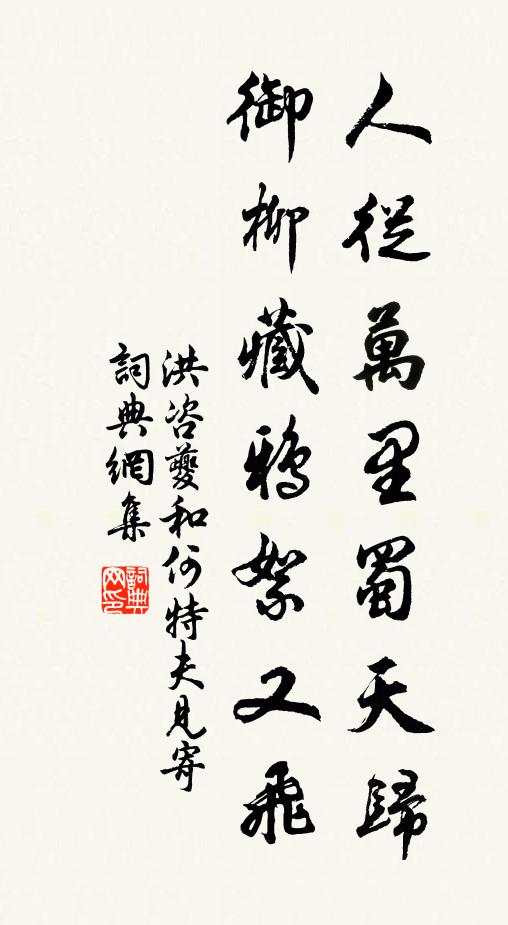 人從萬里蜀天歸
御柳藏鴉絮又飛
洪咨夔和何特夫見寄
詞典網集
詞典网印